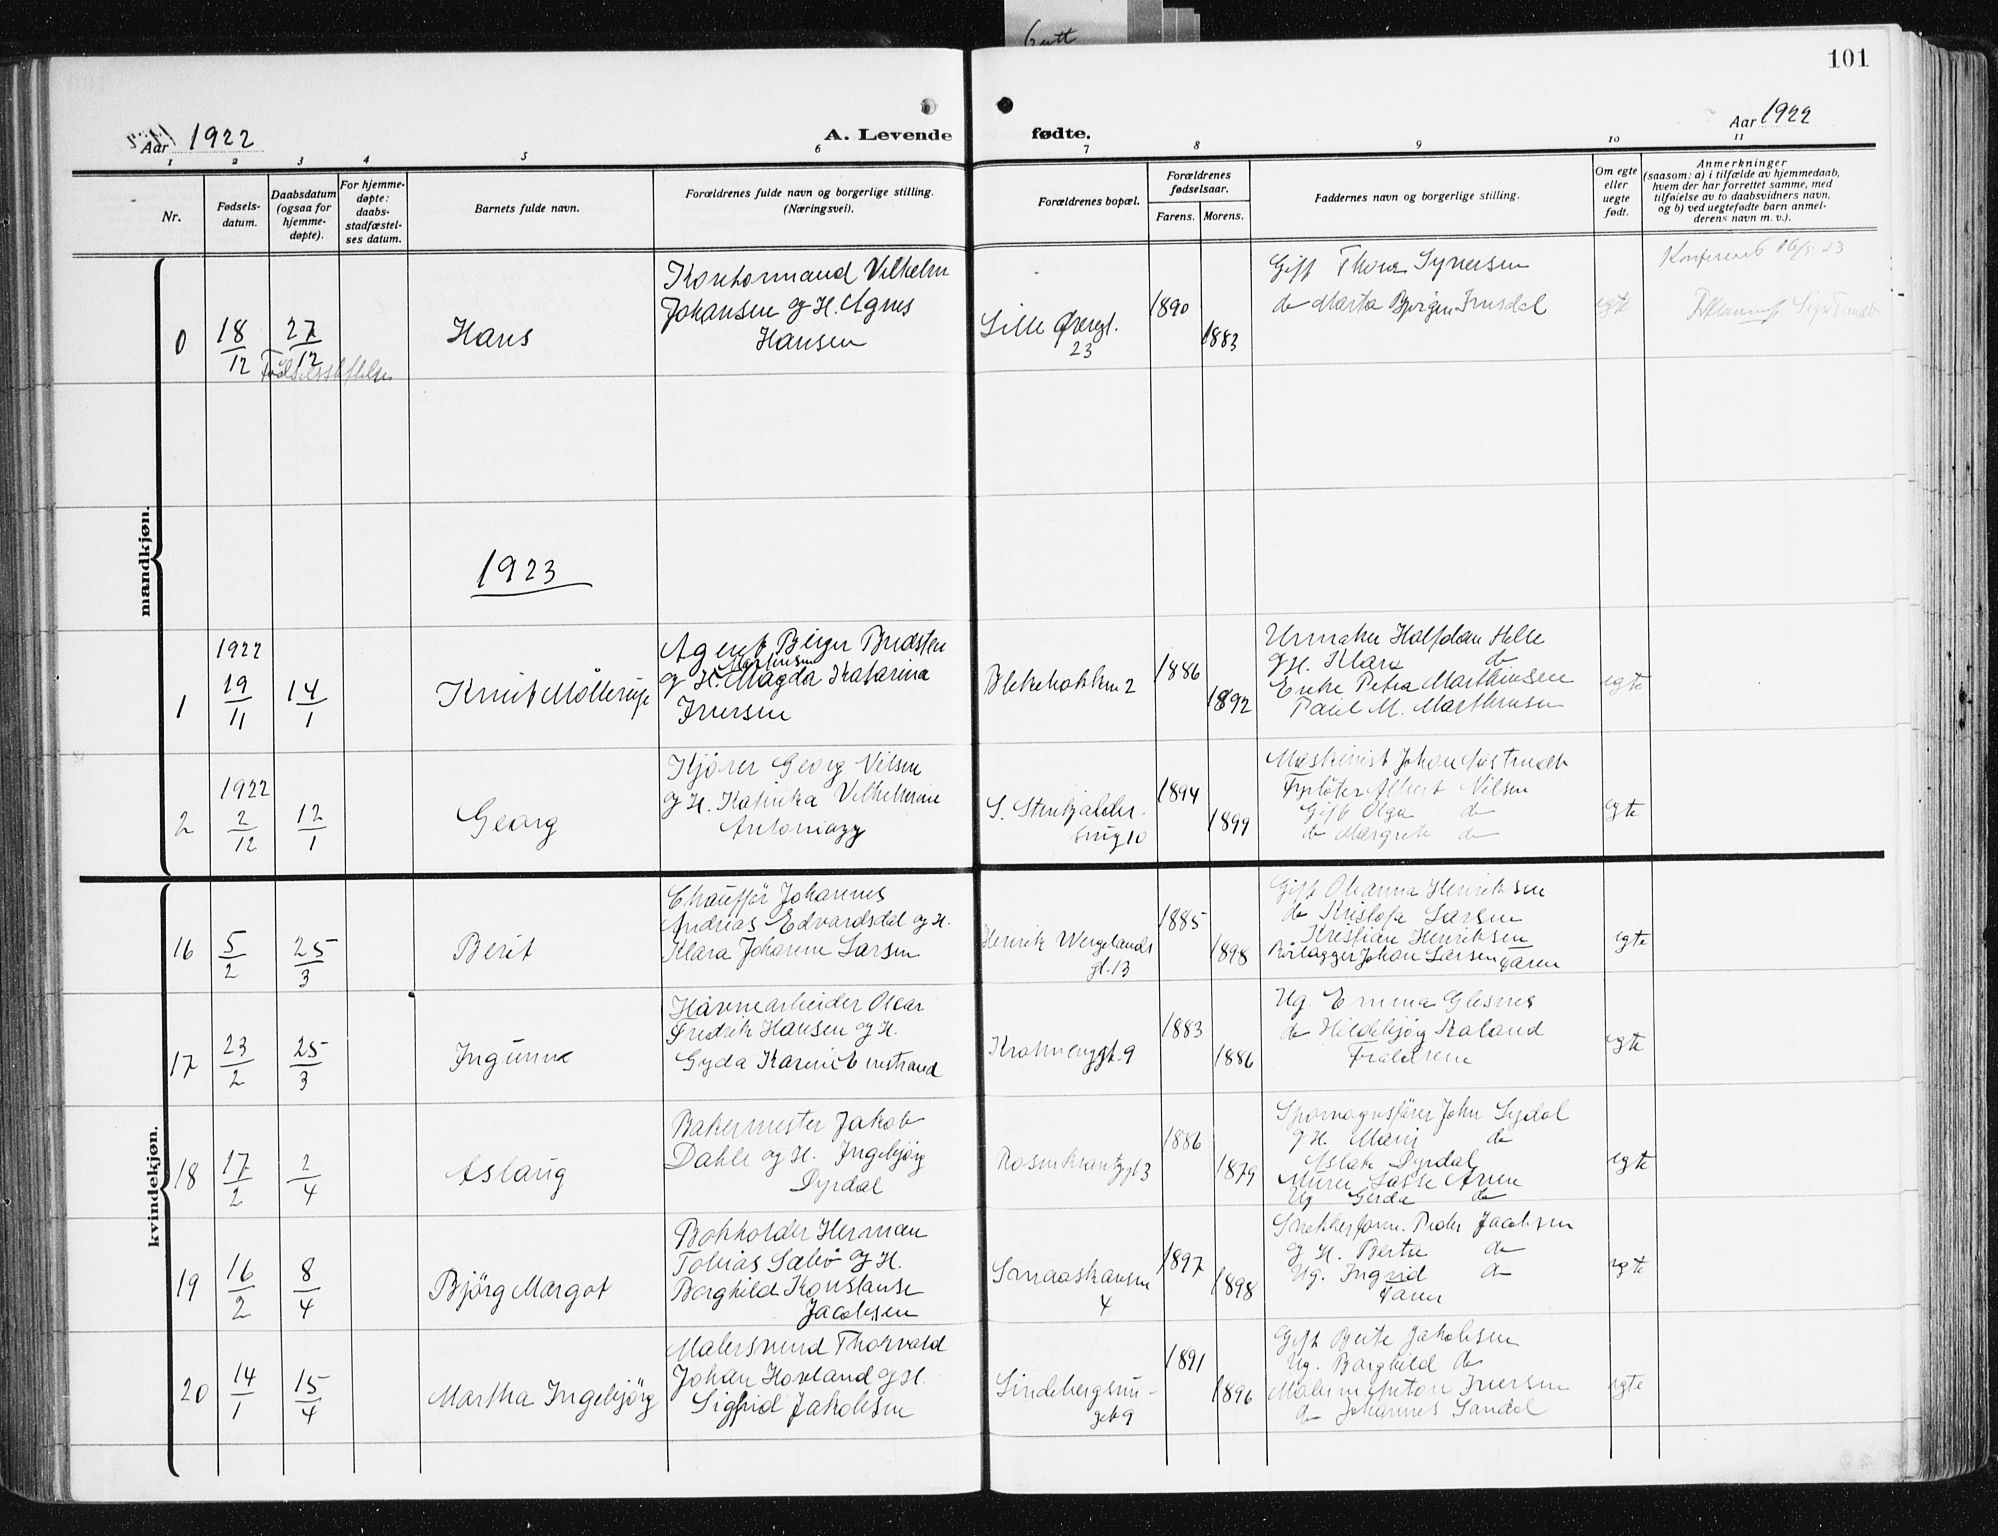 101
Aar 1922
A. Levende fødte.
Aar 1922
1 2 3 4 5 6 7 8 9 10 11
Nr.
Fødsels-
datum.
Daabsdatum
(ogsaa for
hjemme-
døpte).
For hjemme-
døpte:
daabs-
stadfæstel-
ses datum.
Barnets fulde navn.
Forældrenes fulde navn og borgerlige stilling.
(Næringsvei).
Forældrenes bopæl.
Forældrenes
fødselsaar.
Farens. Morens.
Faddernes navn og borgerlige stilling.
Om egte
eller
uegte
født.
Anmerkninger
(saasom: a) i tilfælde av hjemmedaab,
hvem der har forrettet samme, med
tilføielse av to daabsvidners navn,
og b) ved uegtefødte barn anmel-
derens navn m. v.).
mandkjøn.
0
18/12
27/12
Hans
Kontormand Vilhelm
Johansen og H. Agnes
Hansen
Lille Øvregt.
23
1890
1883
Gift Thora Syversen
do Marta
egte
1923
1
1922
19/11
14/1
Knut Møllerup
Agent Birger
Martinsen
og H. Magda Katarina
Iversen
Blekebakken 2
1886
1892
Urmaker Halfdan Helle
og H. Klara do
Enke Petra Marthinsen
Paul M. Marthinsen
egte
2
1922
2/12
12/1
Georg
Kjører Georg Nilsen
og H. Katinka Vilhelmine
S. Stenkjælder-
smug 10
1894
1899
Maskinist Johan
Fyrbøter Albert Nilsen
Gift Olga do
do Margrete do
egte
kvindekjøn.
16
5/2
25/3
Berit
Chauffør Johannes
Andreas Edvardsdal og H.
Klara Johanne Larsen
Henrik Wergelands
gt. 13
1885
1898
Gift Ohanna Henriksen
do Kristofa Larsen
Kristian Henriksen
Rørlægger Johan Larsen Faren
egte
17
23/2
25/3
Ingunne
Havnearbeider Oscar
Fredrik Hansen og H.
Gyda Karine
1883
1886
Ug. Emma Glesnes
do Hildebjørg Kaland
Forældrene
egte
18
17/2
2/4
Aslaug
Bakermester Jakob
Dahle og H. Ingebjørg
Dyrdal
Rosenkrantzgt 3
1886
1879
Sporvognsfører John Dydal
og H. Marie do
Aslak Dyrdal
Murer Lasse Arnen
Ug Gerda do
egte
19
16/2
8/4
Bjørg Margot
Bokholder Herman
Tobias Sæbø og H.
Borghild Konstanse
Jacobsen
Smaaskansen
4
1897
1898
Snekkerform. Peder Jacobsen
og H. Berta do
Ug. Ingrid do
Faren
egte
20
14/1
15/4
Martha Ingebjørg
Malersvend Thorvald
Johan Hovland og H.
Sigfrid Jakobsen
1891
1896
Gift Berte Jakobsen
Ug. Borghild do
Maler Anton Iversen
do Johannes Sandal
egte